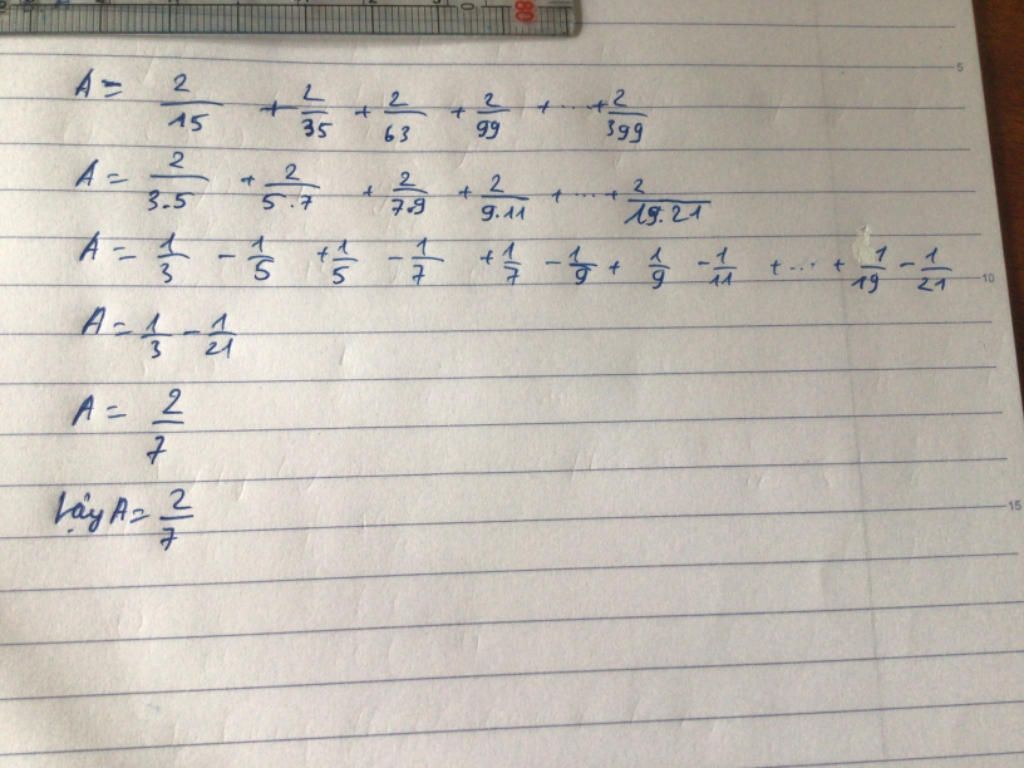 A = 2/15 + 2/35 + 2/63 + 2/99 + ... + 2/399
A = 2/3.5 + 2/5.7 + 2/7.9 + 2/9.11 + ... + 2/19.21
A = 1/3 - 1/5 + 1/5 - 1/7 + 1/7 - 1/9 + 1/9 - 1/11 + ... + 1/19 - 1/21
A = 1/3 - 1/21
A = 2/7
Vậy A = 2/7
5
10
15